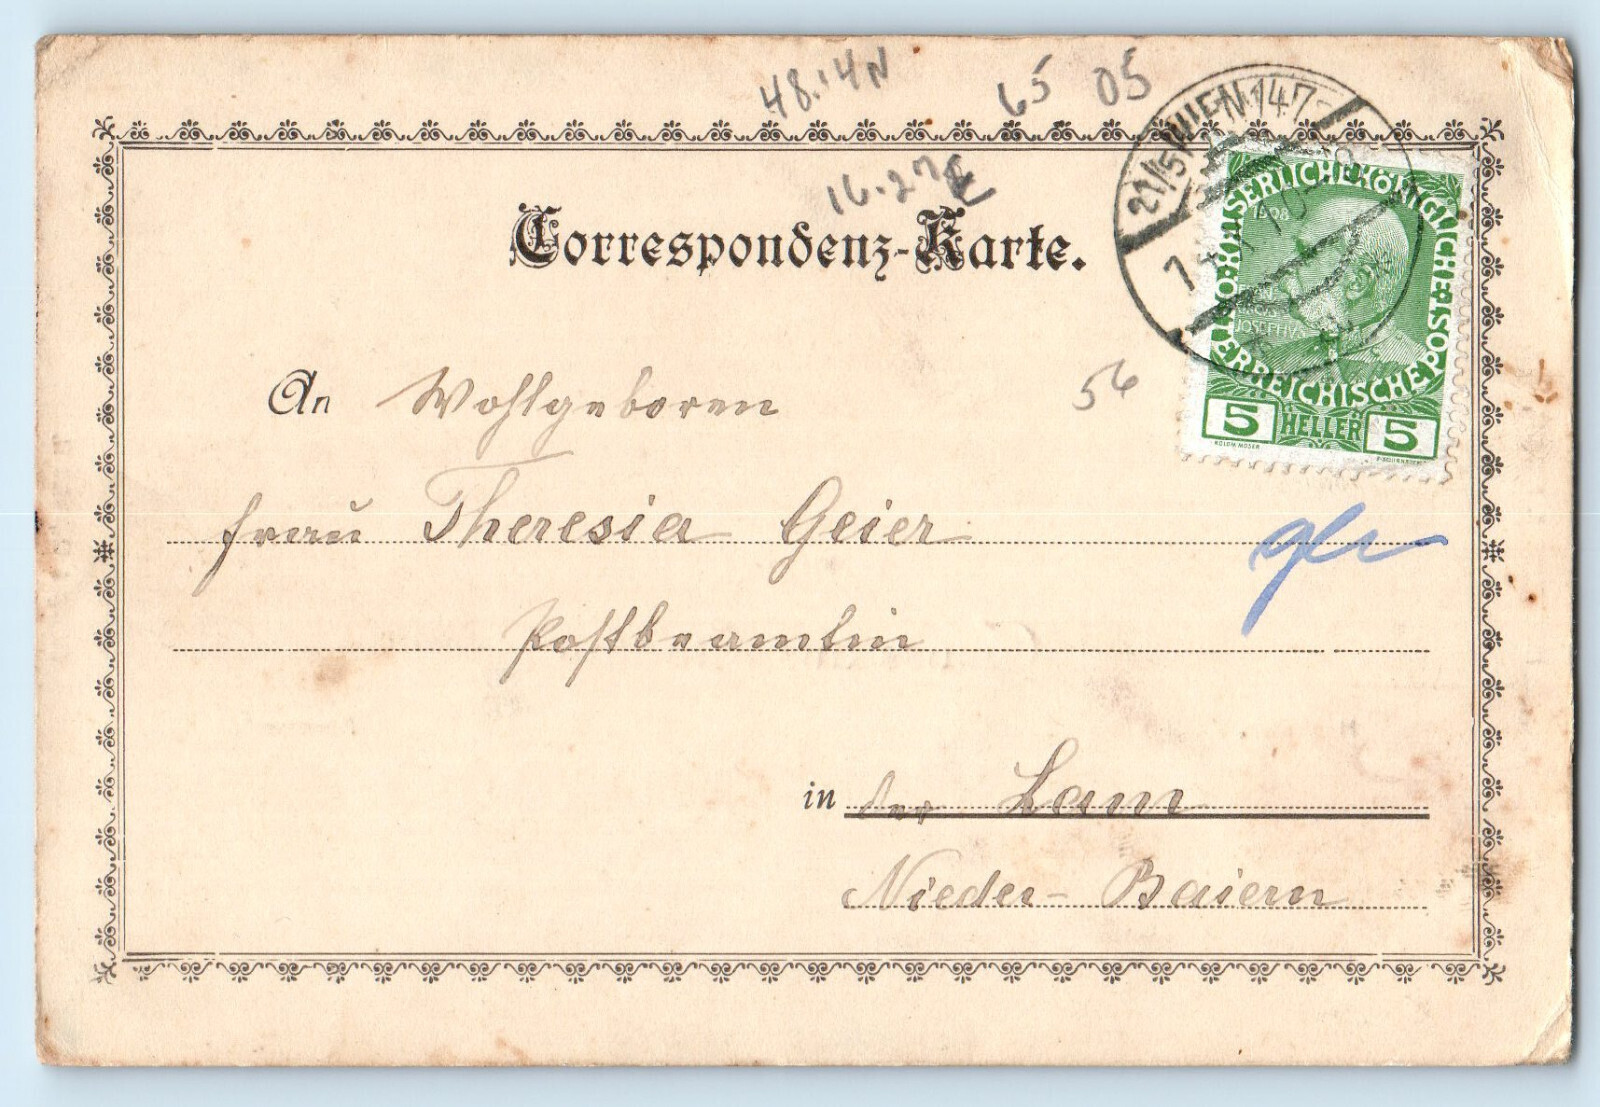 48.14N
65 05
16.27E
21/5 WIEN 147
Correspondenz-Karte.
KAISERLICHE KÖNIGLICHE ÖSTERREICHISCHE POST
1908
JOSEPHVS
5 HELLER 5
KOLOM. MOSER
56
An Wohlgeboren
Frau Theresia Geier
Postbeamtin
in der Lam
Nieder-Baiern